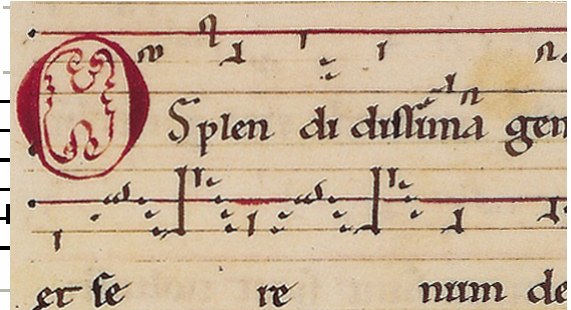 O Splen di dissima gen
et se re num de